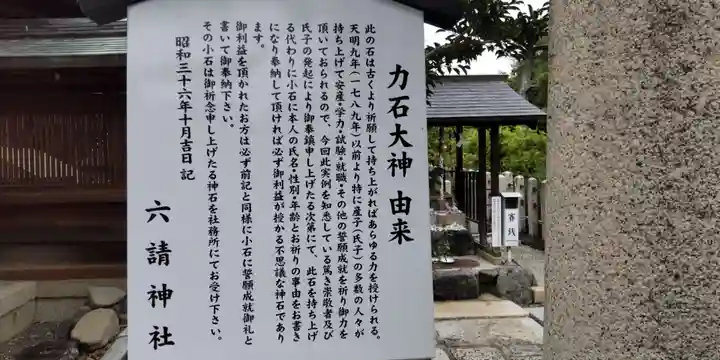 力石大神 由来
此の石は古くより祈願して持ち上がればあらゆる力を授けられる。
天明九年(一七八九年)以前より特に産子(氏子)の多数の人々が
持ち上げて安産・学力・試験・就職・その他の誓願成就を祈り御力を
頂いておられるので、今回此実例を知悉している篤き崇敬者及び
氏子の発起により御奉鎮申し上げたる次第にて、此石を持ち上げ
る代わりに小石に本人の氏名・性別・年齢とお祈りの事由をお書き
になり奉納して頂ければ必ず御利益が授かる不思議な神石であり
ます。
御利益を頂かれたお方は必ず前記と同様に小石に誓願成就御礼と
書いて御奉納下さい。
その小石は御祈念申し上げたる神石を社務所にてお受け下さい。
昭和三十六年十月吉日 記
六請神社
賽銭